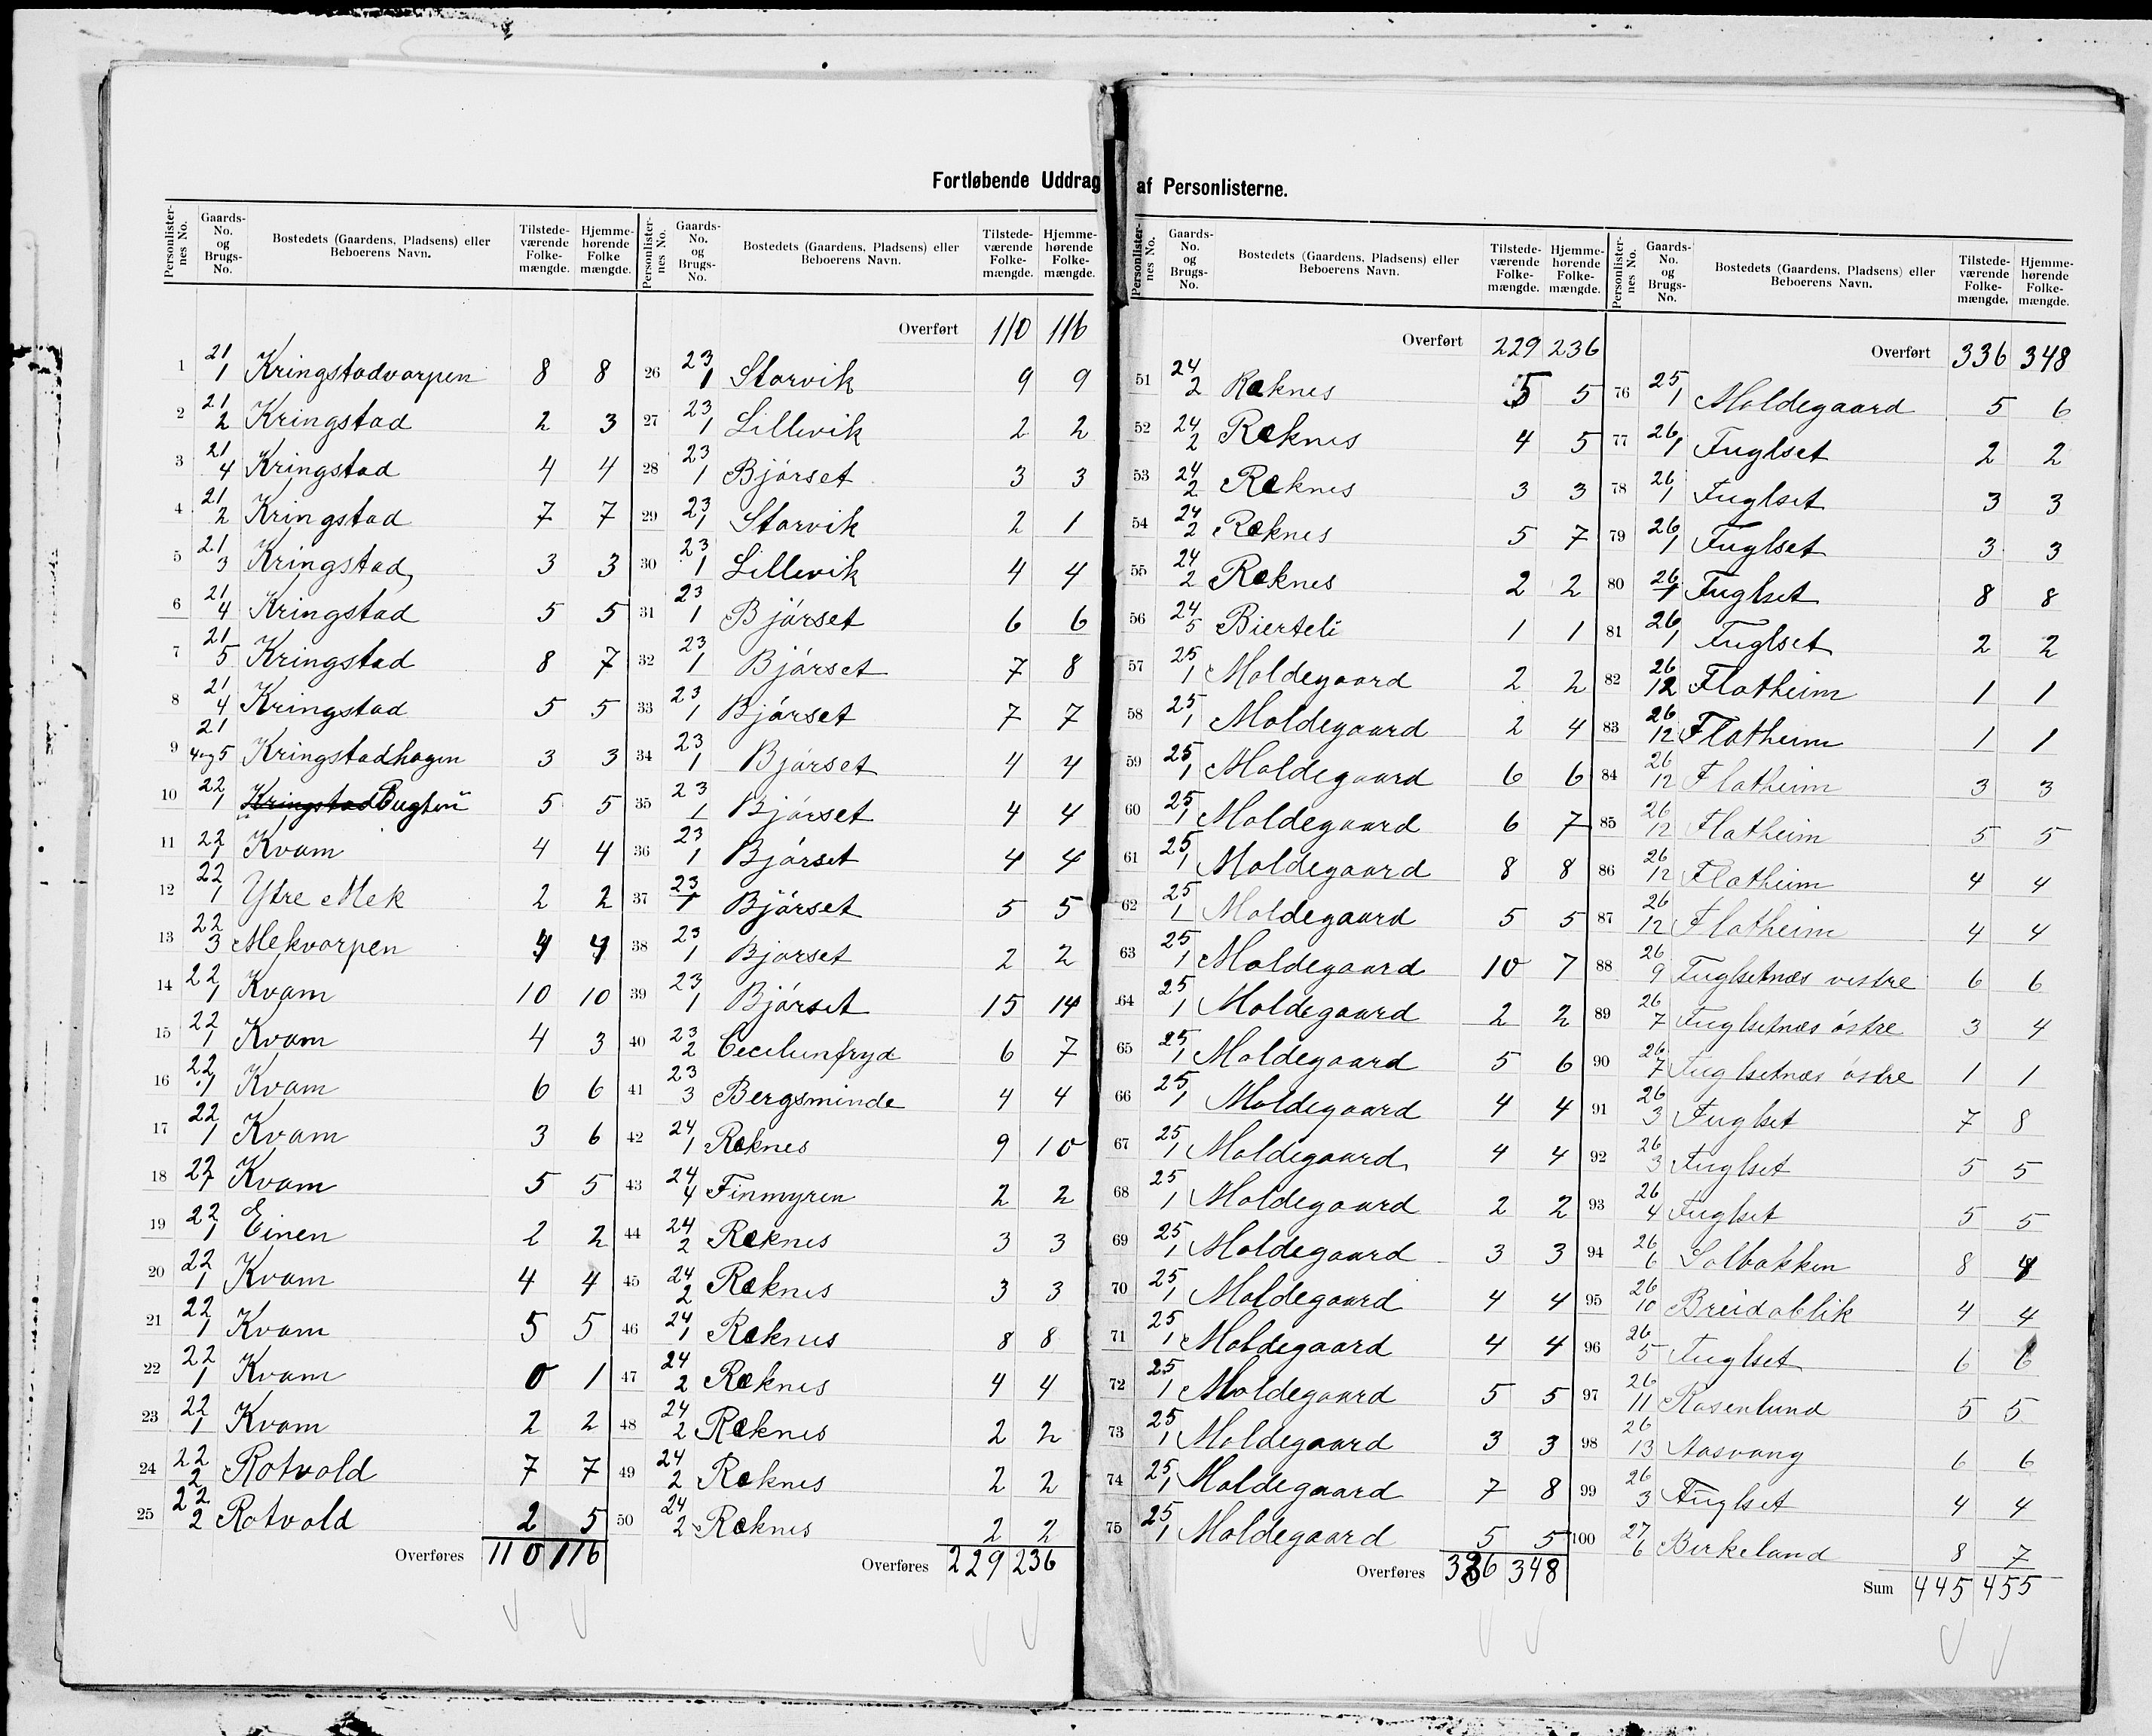 Fortløbende Uddrag af Personlisterne.
Personlister-nes No. Gaards-No. og Brugs-No. Bostedets (Gaardens, Pladsens) eller Beboerens Navn. Tilstede-værende Folke-mængde. Hjemme-hørende Folke mængde.
1 21/1 Kringstadvorpen 8 8
2 21/2 Kringstad 2 3
3 21/4 Kringstad 4 4
4 21/2 Kringstad 7 7
5 21/3 Kringstad 3 3
6 21/4 Kringstad 5 5
7 21/5 Kringstad 8 7
8 21/4 Kringstad 5 5
9 21/4og5 Kringstadhagen 3 3
10 22/1 Kringstad 5 5
11 22/1 Kvam 4 4
12 22/1 Ytre Mek 2 2
13 22/3 Mekvorpen 4 4
14 22/1 Kvam 10 10
15 22/1 Kvam 4 3
16 22/1 Kvam 6 6
17 22/1 Kvam 3 6
18 22/1 Kvam 5 5
19 22/1 Einen 2 2
20 22/1 Kvam 4 4
21 22/1 Kvam 5 5
22 22/1 Kvam 0 1
23 22/1 Kvam 2 2
24 22/2 Rotvold 7 7
25 22/2 Rotvold 2 5
Overføres 110 116
Personlister-nes No. Gaards-No. og Brugs-No. Bostedets (Gaardens, Pladsens) eller Beboerens Navn. Tilstede-værende Folke-mængde. Hjemme-hørende Folke-mængde.
Overført 110 116
26 23/1 Storvik 9 9
27 23/1 Lillevik 2 2
28 23/1 Bjórset 3 3
29 23/1 Storvik 2 1
30 23/1 Lillevik 4 4
31 23/1 Bjórset 6 6
32 23/1 Bjórset 7 8
33 23/1 Bjórset 7 7
34 23/1 Bjórset 4 4
35 23/1 Bjórset 4 4
36 23/1 Bjórset 4 4
37 23/1 Bjórset 5 5
38 23/1 Bjorset 2 2
39 23/1 Bjórset 15 14
40 23/2 Cecilienfryd 6 7
41 23/3 Bergsminde 4 4
42 24/1 Ræknes 9 10
43 24/4 Finmyren 2 2
44 24/2 Ræknes 3 3
45 24/2 Ræknes 3 3
46 24/1 Ræknes 8 8
47 24/2 Ræknes 4 4
48 24/2 Ræknes 2 2
49 24/2 Ræknes 2 2
50 24/2 Ræknes 2 2
Overføres 229 236
Personlister-nes No. Gaards-No. og Brugs-No. Bostedets (Gaardens, Pladsens) eller Beboerens Navn. Tilstede-værende Folke-mængde. Hjemme-hørende Folke-mængde.
Overført 229 236
51 24/2 Ræknes 5 5
52 24/2 Ræknes 4 5
53 24/2 Ræknes 3 3
54 24/2 Ræknes 5 7
55 24/2 Ræknes 2 2
56 24/5 Bierteli 1 1
57 25/1 Moldegaard 2 2
58 25/1 Moldegaard 2 4
59 25/1 Moldegaard 6 6
60 25/1 Moldegaard 6 7
61 25/1 Moldegaard 8 8
62 25/1 Moldegaard 5 5
63 25/1 Moldegaard 10 7
64 25/1 Moldegaard 2 2
65 25/1 Moldegaard 5 6
66 25/1 Moldegaard 4 4
67 25/1 Moldegaard 4 4
68 25/1 Moldegaard 2 2
69 25/1 Moldegaard 3 3
70 25/1 Moldegaard 4 4
71 25/1 Moldegaard 4 4
72 25/1 Moldegaard 5 5
73 25/1 Moldegaard 3 3
74 25/1 Moldegaard 7 8
75 25/1 Moldegaard 5 5
Overføres 336 348
Personlister-nes No. Gaards-No. og Brugs-No. Bostedets (Gaardens, Pladsens) eller Beboerens Navn. Tilstede-værende Folke-mængde. Hjemme-hørende Folke-mængde.
Overført 336 348
76 25/1 Moldegaard 5 6
77 26/1 Fuglset 2 2
78 26/1 Fuglset 3 3
79 26/1 Fuglset 3 3
80 26/1 Fuglset 8 8
81 26/1 Fuglset 2 2
82 26/12 Flatheim 1 1
83 26/12 Flatheim 1 1
84 26/12 Flatheim 3 3
85 26/12 Flatheim 5 5
86 26/12 Flatheim 4 4
87 26/12 Flatheim 4 4
88 26/9 Fuglsetnæs vestre 6 6
89 26/7 Fuglsetnæs óstre 3 4
90 26/7 Fuglsetnæs óstre 1 1
91 26/3 Fuglset 7 8
92 26/3 Fuglset 5 5
93 26/4 Fuglset 5 5
94 26/6 Solbakken 8
95 26/10 Breidablik 4 4
96 26/5 Fuglset 6 6
97 26/11 Rosenlund 5 5
98 26/13 Aasvang 6 6
99 26/3 Fuglset 4 4
100 27/6 Birkeland 8 7
Sum 445 455